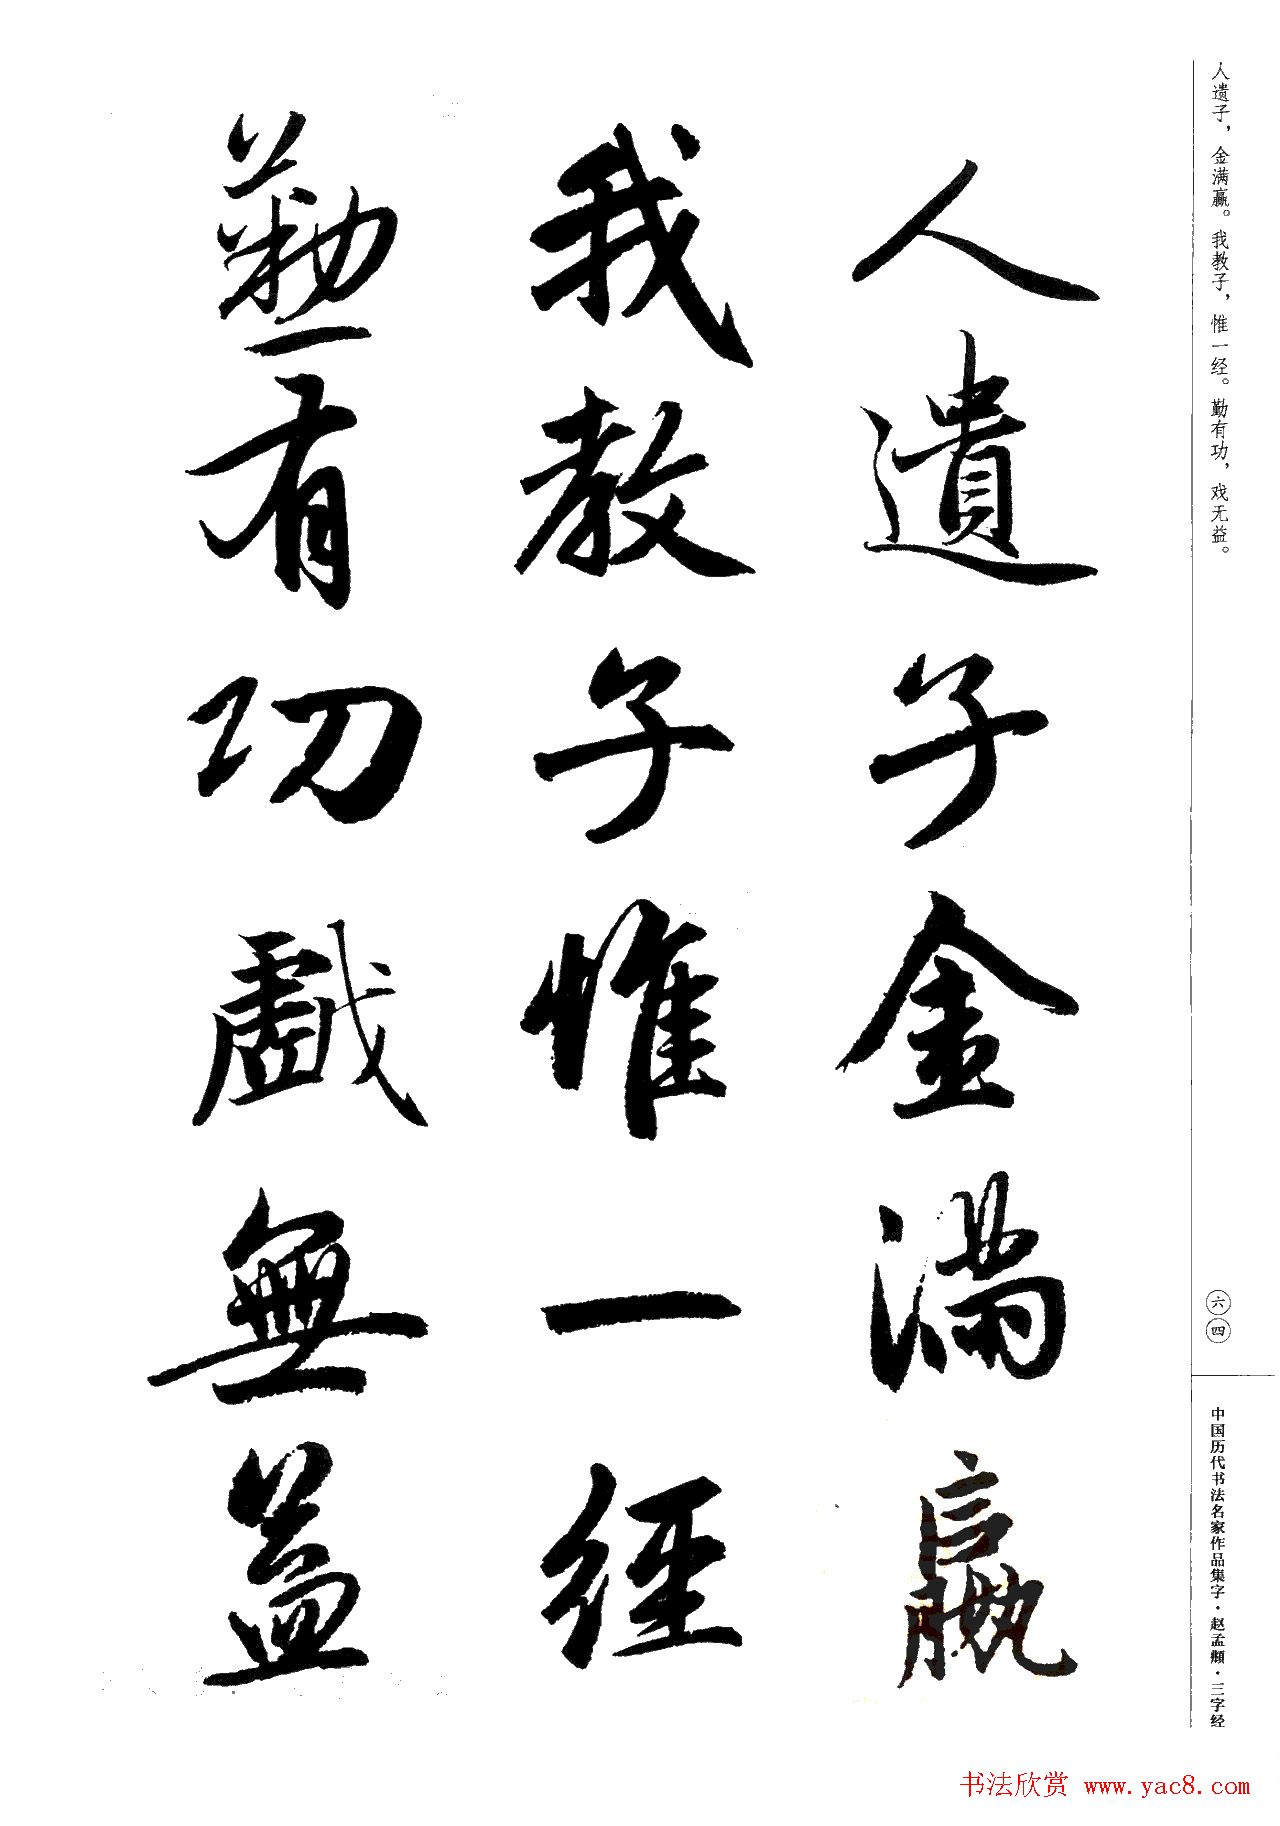 人遺子金滿嬴
我教子惟一經
勤有功戲無益
人遗子，金满赢。我教子，惟一经。勤有功，戏无益。
六四
中国历代书法名家作品集字·赵孟頫·三字经
书法欣赏 www.yac8.com